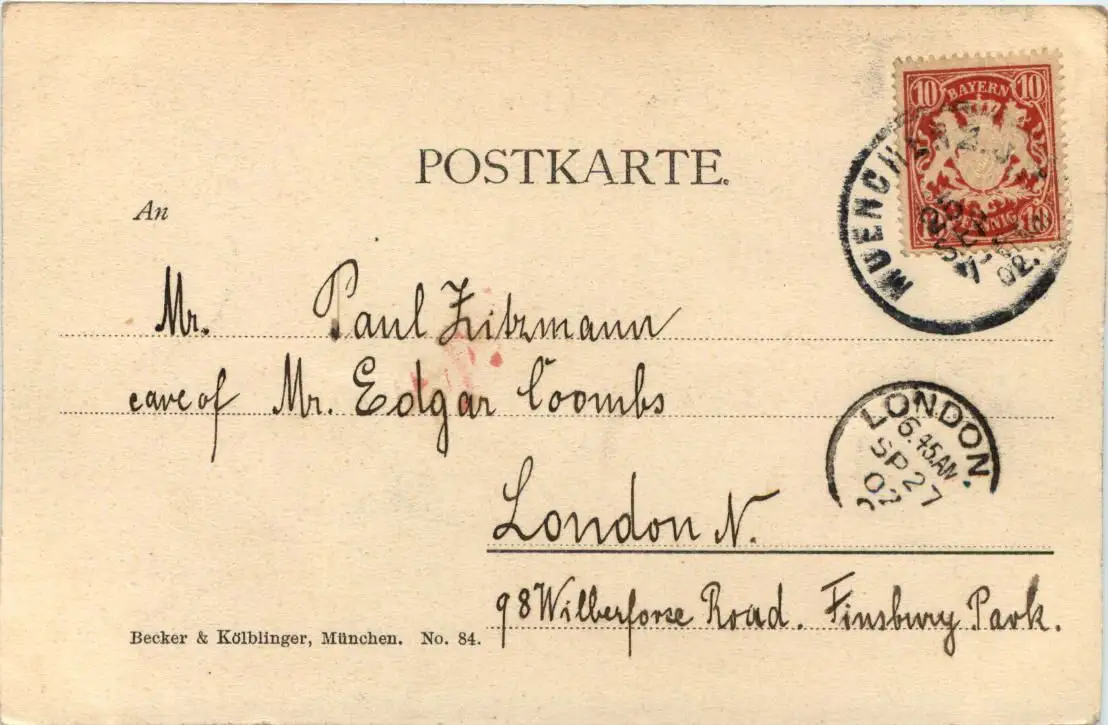 10 BAYERN 10
10 PFENNIG 10
MUENCHEN 2.
25 SEP
02.
POSTKARTE.
An
Mr. Paul Zitzmann
care of Mr. Edgar Coombs
LONDON.
6.45AM
SP 27
02
London N.
98 Wilberforse Road. Finsbury Park.
Becker & Kölblinger, München. No. 84.